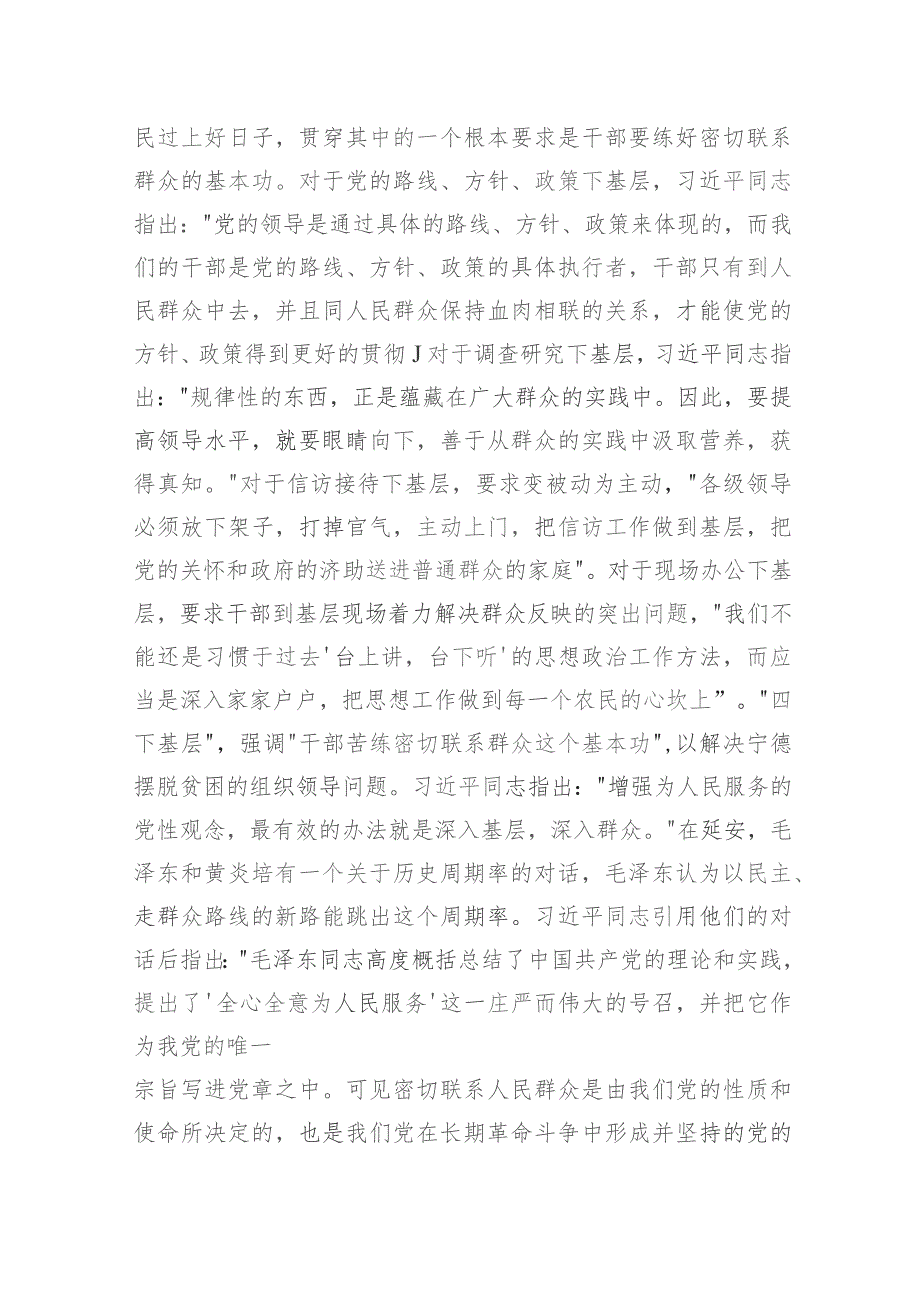 民过上好日子，贯穿其中的一个根本要求是干部要练好密切联系
群众的基本功。对于党的路线、方针、政策下基层，习近平同志
指出："党的领导是通过具体的路线、方针、政策来体现的，而我
们的干部是党的路线、方针、政策的具体执行者，干部只有到人
民群众中去，并且同人民群众保持血肉相联的关系，才能使党的
方针、政策得到更好的贯彻J对于调查研究下基层，习近平同志指
出："规律性的东西，正是蕴藏在广大群众的实践中。因此，要提
高领导水平，就要眼睛向下，善于从群众的实践中汲取营养，获
得真知。"对于信访接待下基层，要求变被动为主动，"各级领导
必须放下架子，打掉官气，主动上门，把信访工作做到基层，把
党的关怀和政府的济助送进普通群众的家庭"。对于现场办公下基
层，要求干部到基层现场着力解决群众反映的突出问题，"我们不
能还是习惯于过去'台上讲，台下听'的思想政治工作方法，而应
当是深入家家户户，把思想工作做到每一个农民的心坎上”。"四
下基层"，强调"干部苦练密切联系群众这个基本功",以解决宁德
摆脱贫困的组织领导问题。习近平同志指出："增强为人民服务的
党性观念，最有效的办法就是深入基层，深入群众。"在延安，毛
泽东和黄炎培有一个关于历史周期率的对话，毛泽东认为以民主、
走群众路线的新路能跳出这个周期率。习近平同志引用他们的对
话后指出："毛泽东同志高度概括总结了中国共产党的理论和实践，
提出了'全心全意为人民服务'这一庄严而伟大的号召，并把它作
为我党的唯一
宗旨写进党章之中。可见密切联系人民群众是由我们党的性质和
使命所决定的，也是我们党在长期革命斗争中形成并坚持的党的